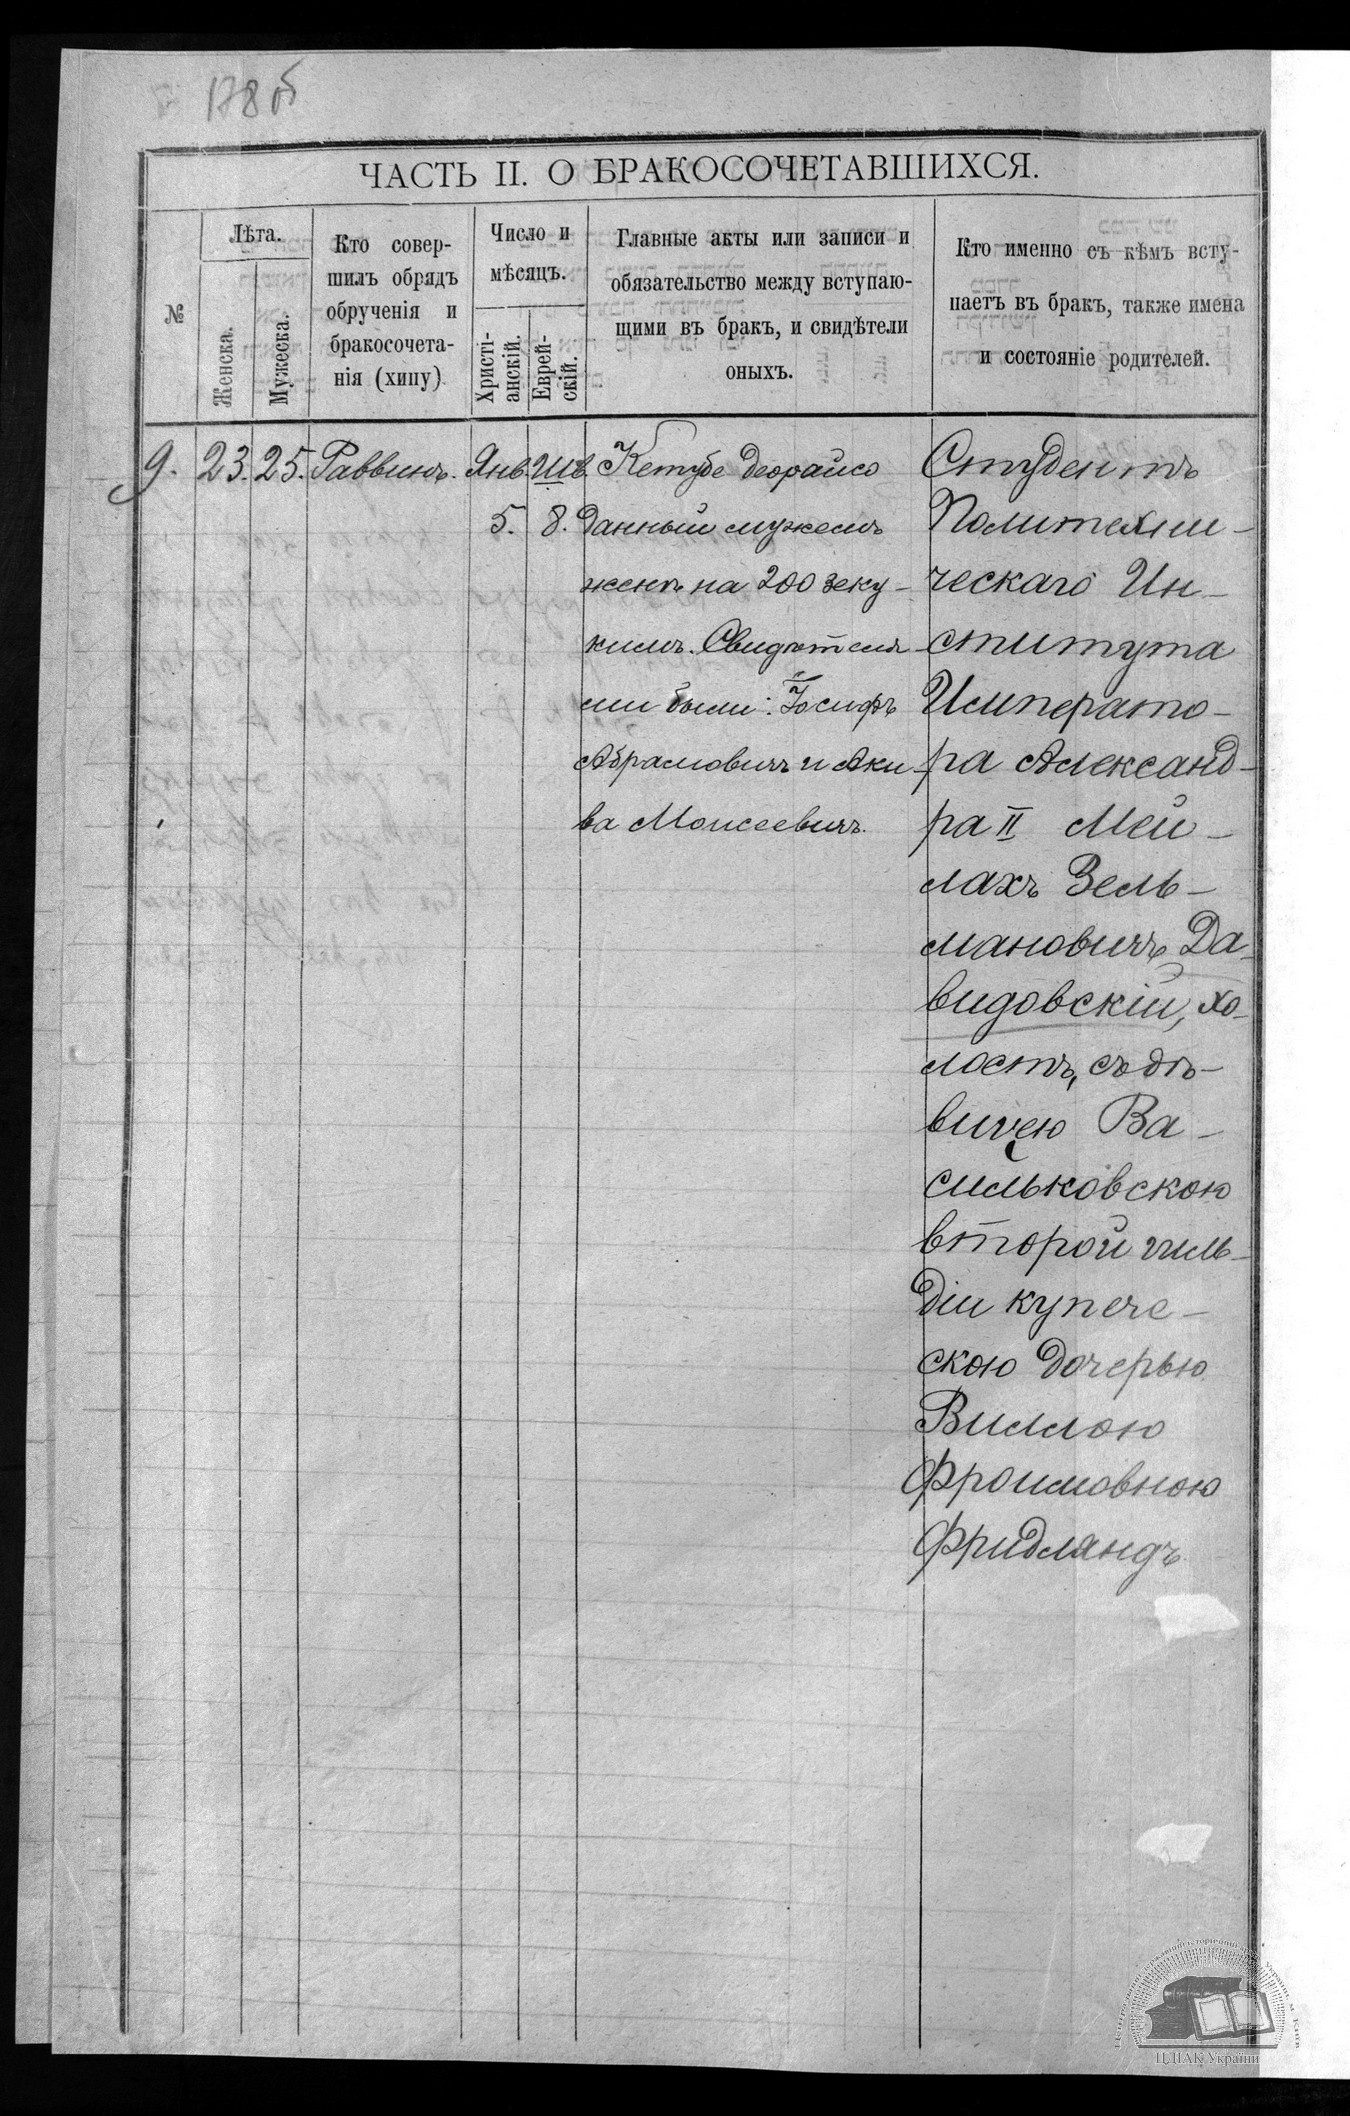 178об
ЧАСТЬ II. О БРАКОСОЧЕТАВШИХСЯ.
№
Лѣта.
Женска.
Мужеска.
Кто совер-
шилъ обрядъ
обрученія и
бракосочета-
нія (хипу)
Число и
мѣсяцъ.
Христі-
анскій.
Еврей-
скій.
Главные акты или записи и
обязательство между вступаю-
щими въ бракъ, и свидѣтели
оныхъ.
Кто именно съ кѣмъ всту-
паетъ въ бракъ, также имена
и состояніе родителей.
9. 23. 25. Раввинъ. Янв. Шв.
5. 8.
Кетубе деорайсо
данный мужемъ
женѣ на 200 зеку-
кимъ. Свидѣтеля-
ми были: Іосифъ
Абрамовичъ и Аки-
ва Моисеевичъ.
Студентъ
Политехни-
ческаго Ин-
ститута
Императо-
ра Александ-
ра II Мей-
лахъ Зель-
мановичъ Да-
видовскій, хо-
лостъ, съ дѣ-
вицею Ва-
сильковскою
второй гиль-
діи купече-
скою дочерью
Виллою
Фроимовною
Фридляндъ
ЦДІАК України